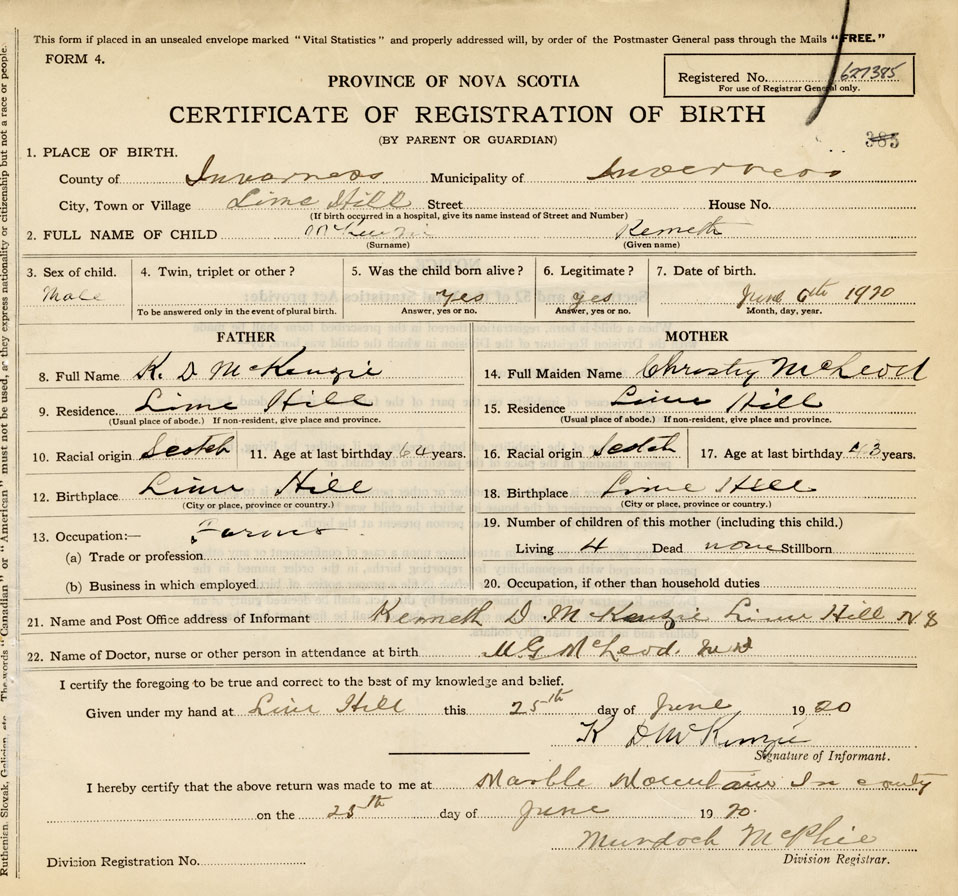 This form if placed in an unsealed envelope marked "Vital Statistics" and properly addressed will, by order of the Postmaster General pass through the Mails "FREE."
FORM 4.
Registered No. 627385
For use of Registrar General only.
PROVINCE OF NOVA SCOTIA
CERTIFICATE OF REGISTRATION OF BIRTH
(BY PARENT OR GUARDIAN)
385
1. PLACE OF BIRTH.
County of Inverness Municipality of Inverness
City, Town or Village Lime Hill Street House No.
(If birth occurred in a hospital, give its name instead of Street and Number)
2. FULL NAME OF CHILD McKenzie Kenneth
(Surname) (Given name)
3. Sex of child. 4. Twin, triplet or other? 5. Was the child born alive? 6. Legitimate? 7. Date of birth.
Male yes yes June 6th 1920
To be answered only in the event of plural birth. Answer, yes or no. Answer, yes or no. Month, day, year.
FATHER
8. Full Name K. D McKenzie
9. Residence Lime Hill
(Usual place of abode.) If non-resident, give place and province.
10. Racial origin Scotch 11. Age at last birthday 64 years.
12. Birthplace Lime Hill
(City or place, province or country.)
13. Occupation:— Farmer
(a) Trade or profession
(b) Business in which employed
MOTHER
14. Full Maiden Name Christy McLeod
15. Residence Lime Hill
(Usual place of abode.) If non-resident, give place and province.
16. Racial origin Scotch 17. Age at last birthday 43 years.
18. Birthplace Lime Hill
(City or place, province or country.)
19. Number of children of this mother (including this child.)
Living 4 Dead none Stillborn
20. Occupation, if other than household duties
21. Name and Post Office address of Informant Kenneth D McKenzie Lime Hill N S
22. Name of Doctor, nurse or other person in attendance at birth M G McLeod. M D
I certify the foregoing to be true and correct to the best of my knowledge and belief.
Given under my hand at Lime Hill this 25th day of June 1920
K D McKenzie
Signature of Informant.
I hereby certify that the above return was made to me at Marble Mountain In county
on the 25th day of June 1920.
Murdoch McPhie
Division Registration No. Division Registrar.
The words "Canadian" or "American" must not be used, as they express nationality or citizenship but not a race or people.
Ruthenian, Slovak, Galician, etc.